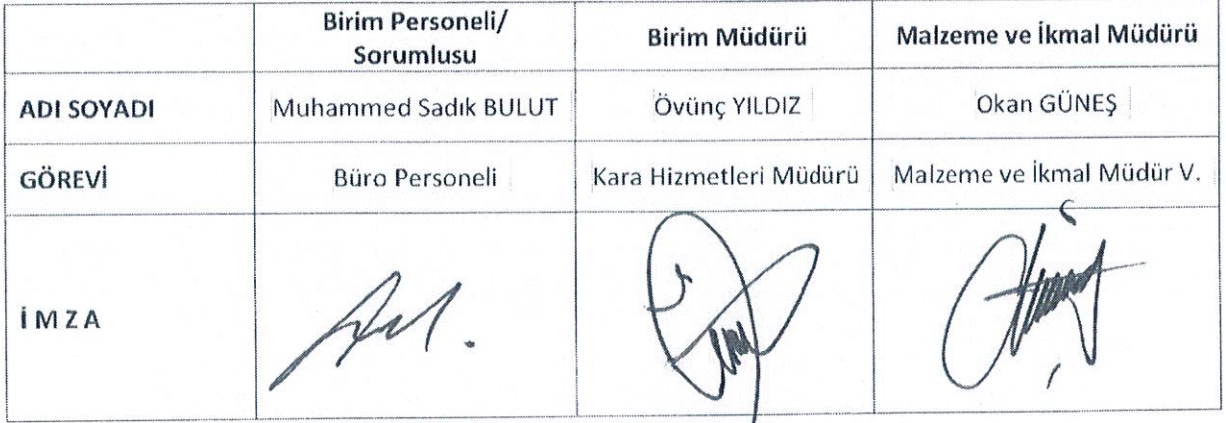 Birim Personeli/
Sorumlusu
Birim Müdürü
Malzeme ve İkmal Müdürü
ADI SOYADI
Muhammed Sadık BULUT
Övünç YILDIZ
Okan GÜNEŞ
GÖREVİ
Büro Personeli
Kara Hizmetleri Müdürü
Malzeme ve İkmal Müdür V.
İ M Z A